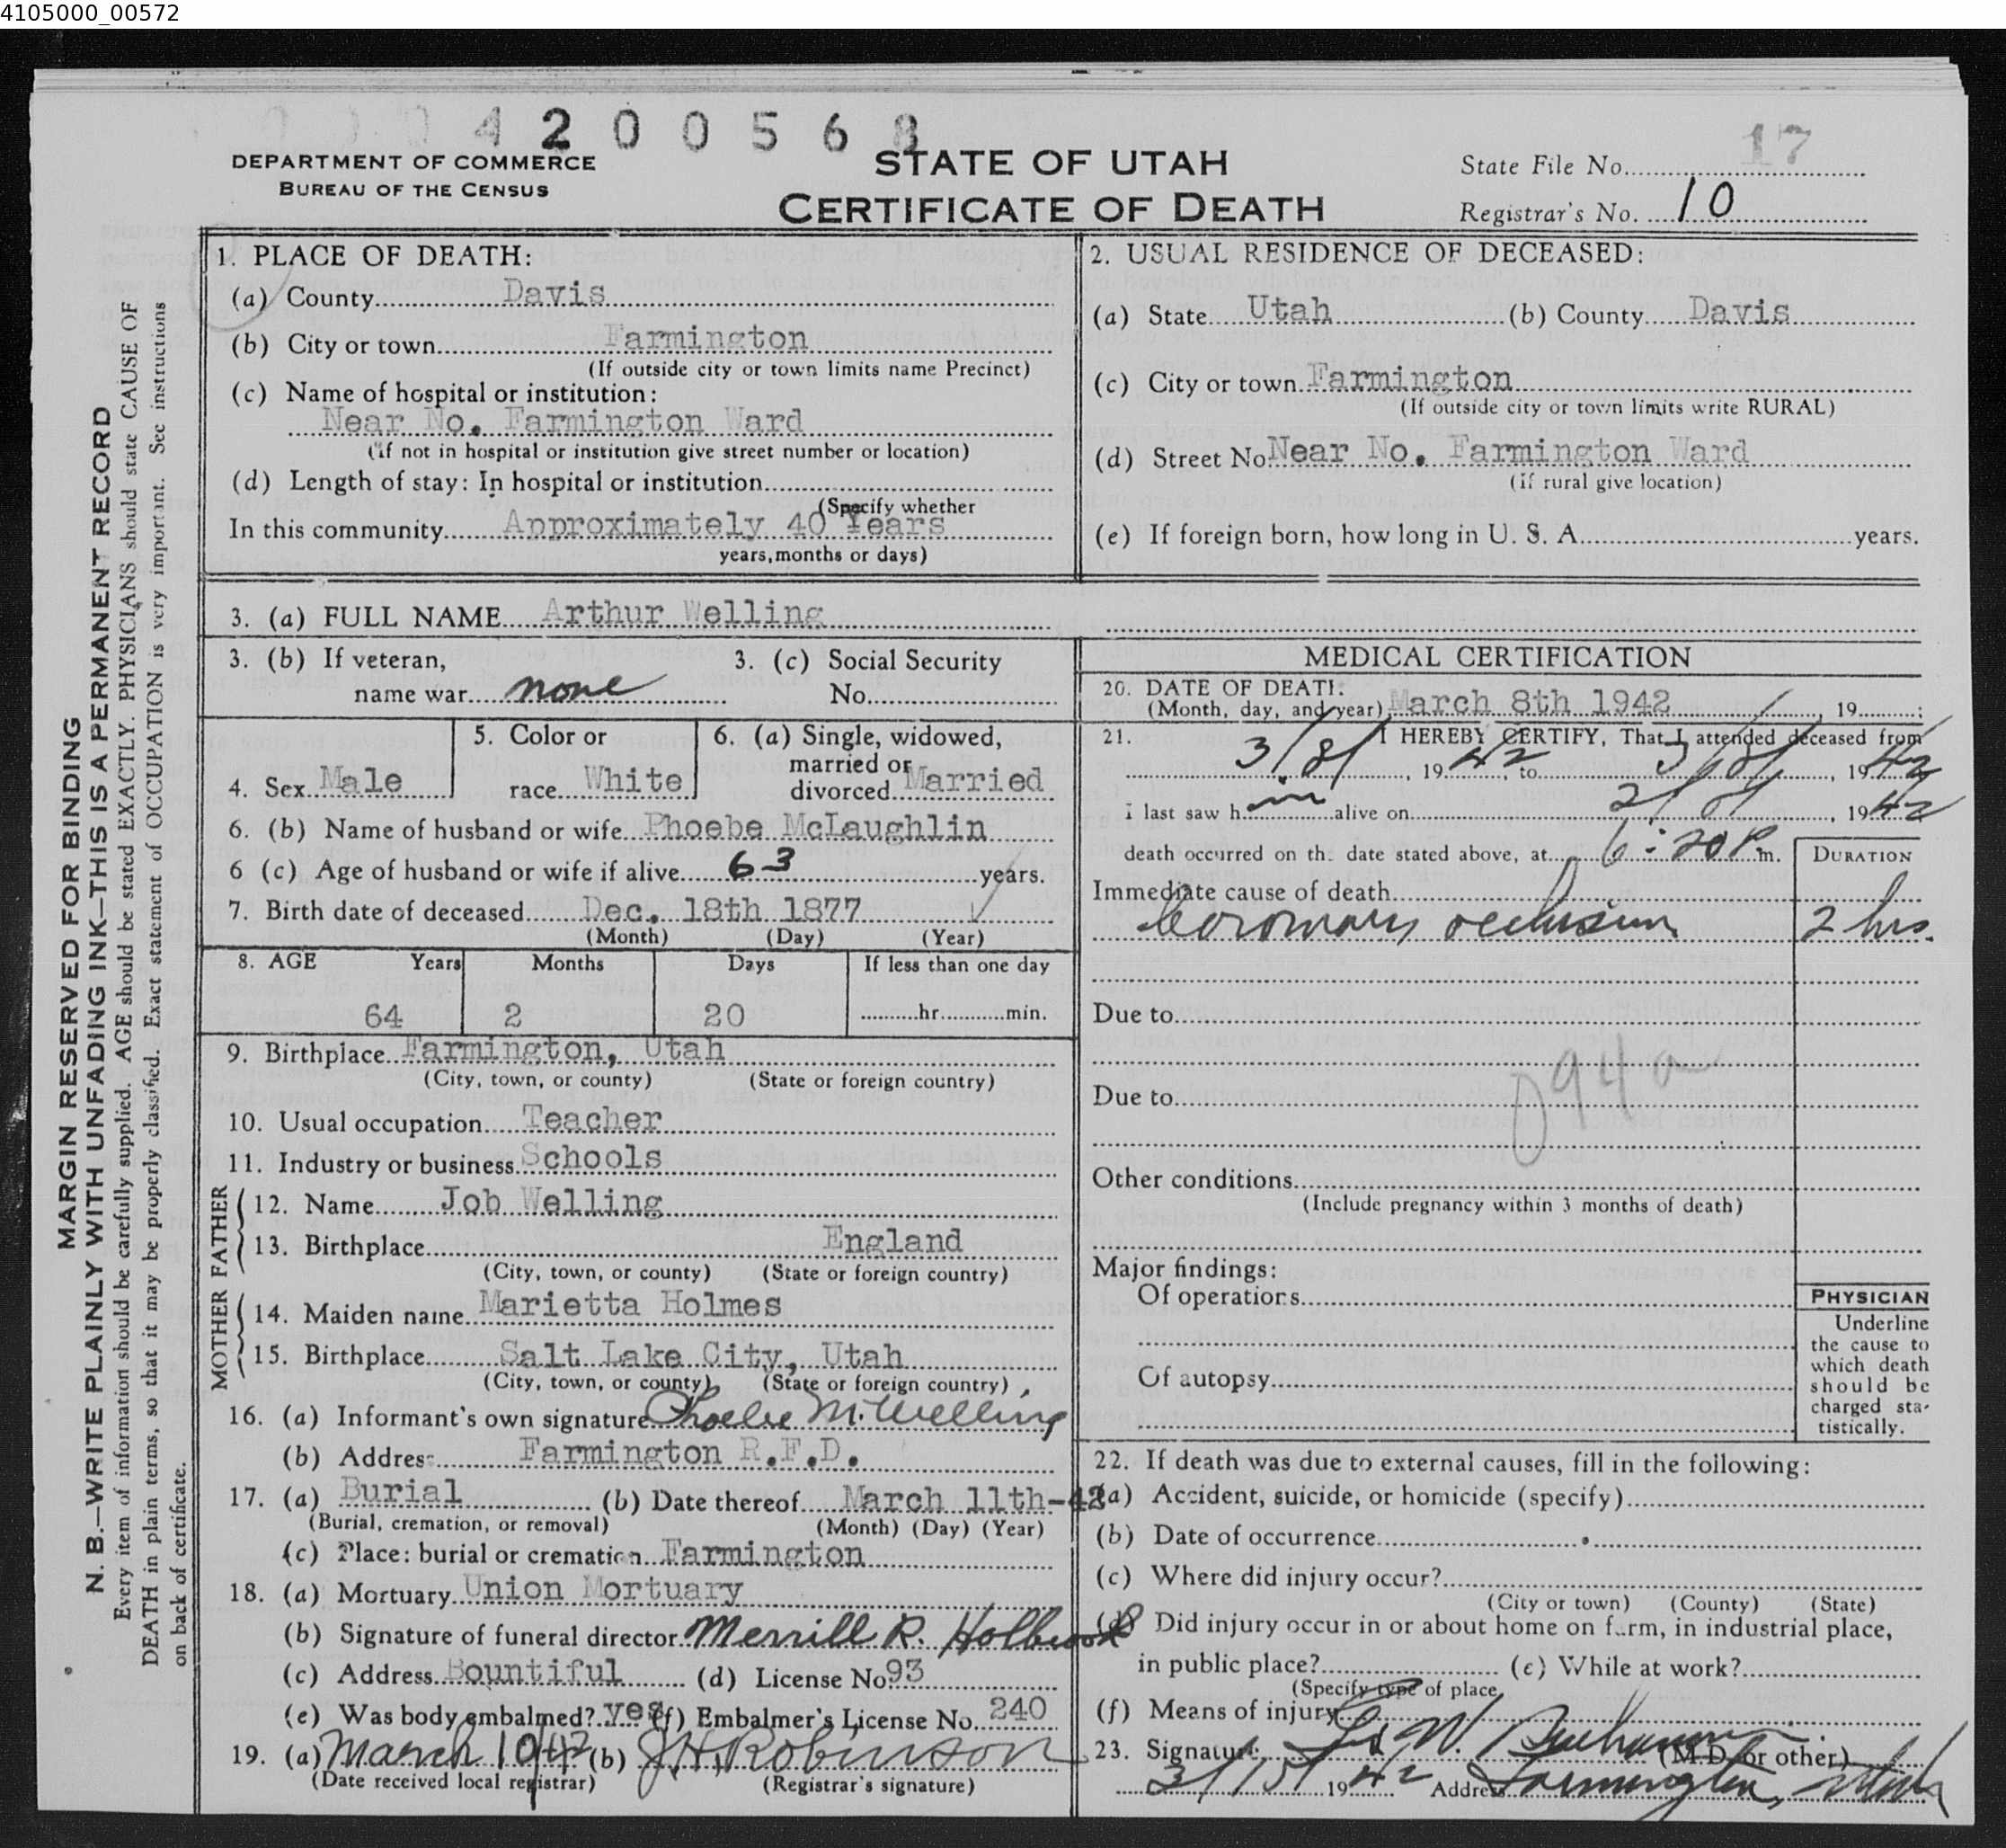 4105000_00572
4 2 0 0 5 6 8
DEPARTMENT OF COMMERCE
BUREAU OF THE CENSUS
STATE OF UTAH
CERTIFICATE OF DEATH
State File No. 17
Registrar's No. 10
MARGIN RESERVED FOR BINDING
N. B.—WRITE PLAINLY WITH UNFADING INK—THIS IS A PERMANENT RECORD
Every item of information should be carefully supplied. AGE should be stated EXACTLY. PHYSICIANS should state CAUSE OF
DEATH in plain terms, so that it may be properly classified. Exact statement of OCCUPATION is very important. See instructions
on back of certificate.
1. PLACE OF DEATH:
(a) County Davis
(b) City or town Farmington
(If outside city or town limits name Precinct)
(c) Name of hospital or institution:
Near No. Farmington Ward
(if not in hospital or institution give street number or location)
(d) Length of stay: In hospital or institution
(Specify whether
In this community Approximately 40 Years
years, months or days)
2. USUAL RESIDENCE OF DECEASED:
(a) State Utah (b) County Davis
(c) City or town Farmington
(If outside city or town limits write RURAL)
(d) Street No. Near No. Farmington Ward
(if rural give location)
(e) If foreign born, how long in U. S. A. years.
3. (a) FULL NAME Arthur Welling
3. (b) If veteran,
name war none
3. (c) Social Security
No.
4. Sex Male
5. Color or
race White
6. (a) Single, widowed,
married or
divorced Married
6. (b) Name of husband or wife Phoebe McLaughlin
6 (c) Age of husband or wife if alive 63 years.
7. Birth date of deceased Dec. 18th 1877
(Month) (Day) (Year)
8. AGE Years Months Days If less than one day
64 2 20 hr. min.
9. Birthplace Farmington, Utah
(City, town, or county) (State or foreign country)
10. Usual occupation Teacher
11. Industry or business Schools
FATHER
12. Name Job Welling
13. Birthplace England
(City, town, or county) (State or foreign country)
MOTHER
14. Maiden name Marietta Holmes
15. Birthplace Salt Lake City, Utah
(City, town, or county) (State or foreign country)
16. (a) Informant's own signature Phoebe M. Welling
(b) Address Farmington R.F.D.
17. (a) Burial (b) Date thereof March 11th-42
(Burial, cremation, or removal) (Month) (Day) (Year)
(c) Place: burial or cremation Farmington
18. (a) Mortuary Union Mortuary
(b) Signature of funeral director Merrill R. Holbrook
(c) Address Bountiful (d) License No. 93
(e) Was body embalmed? yes (f) Embalmer's License No. 240
19. (a) March 10 42 (b) J.H. Robinson
(Date received local registrar) (Registrar's signature)
MEDICAL CERTIFICATION
20. DATE OF DEATH:
(Month, day, and year) March 8th 1942 , 19 ;
21. I HEREBY CERTIFY, That I attended deceased from
3/8/ , 19 42, to 3/8/ , 19 42
I last saw h im alive on , 19 42
death occurred on the date stated above, at 6:20 P. m.
DURATION
Immediate cause of death
Coronary occlusion 2 hrs.
Due to
094a
Due to
Other conditions
(Include pregnancy within 3 months of death)
Major findings:
Of operations
Of autopsy
PHYSICIAN
Underline
the cause to
which death
should be
charged sta-
tistically.
22. If death was due to external causes, fill in the following:
(a) Accident, suicide, or homicide (specify)
(b) Date of occurrence
(c) Where did injury occur?
(City or town) (County) (State)
(d) Did injury occur in or about home on farm, in industrial place,
in public place? (e) While at work?
(Specify type of place
(f) Means of injury
23. Signature W. (M.D. or other)
19 42 Address Farmington, Utah